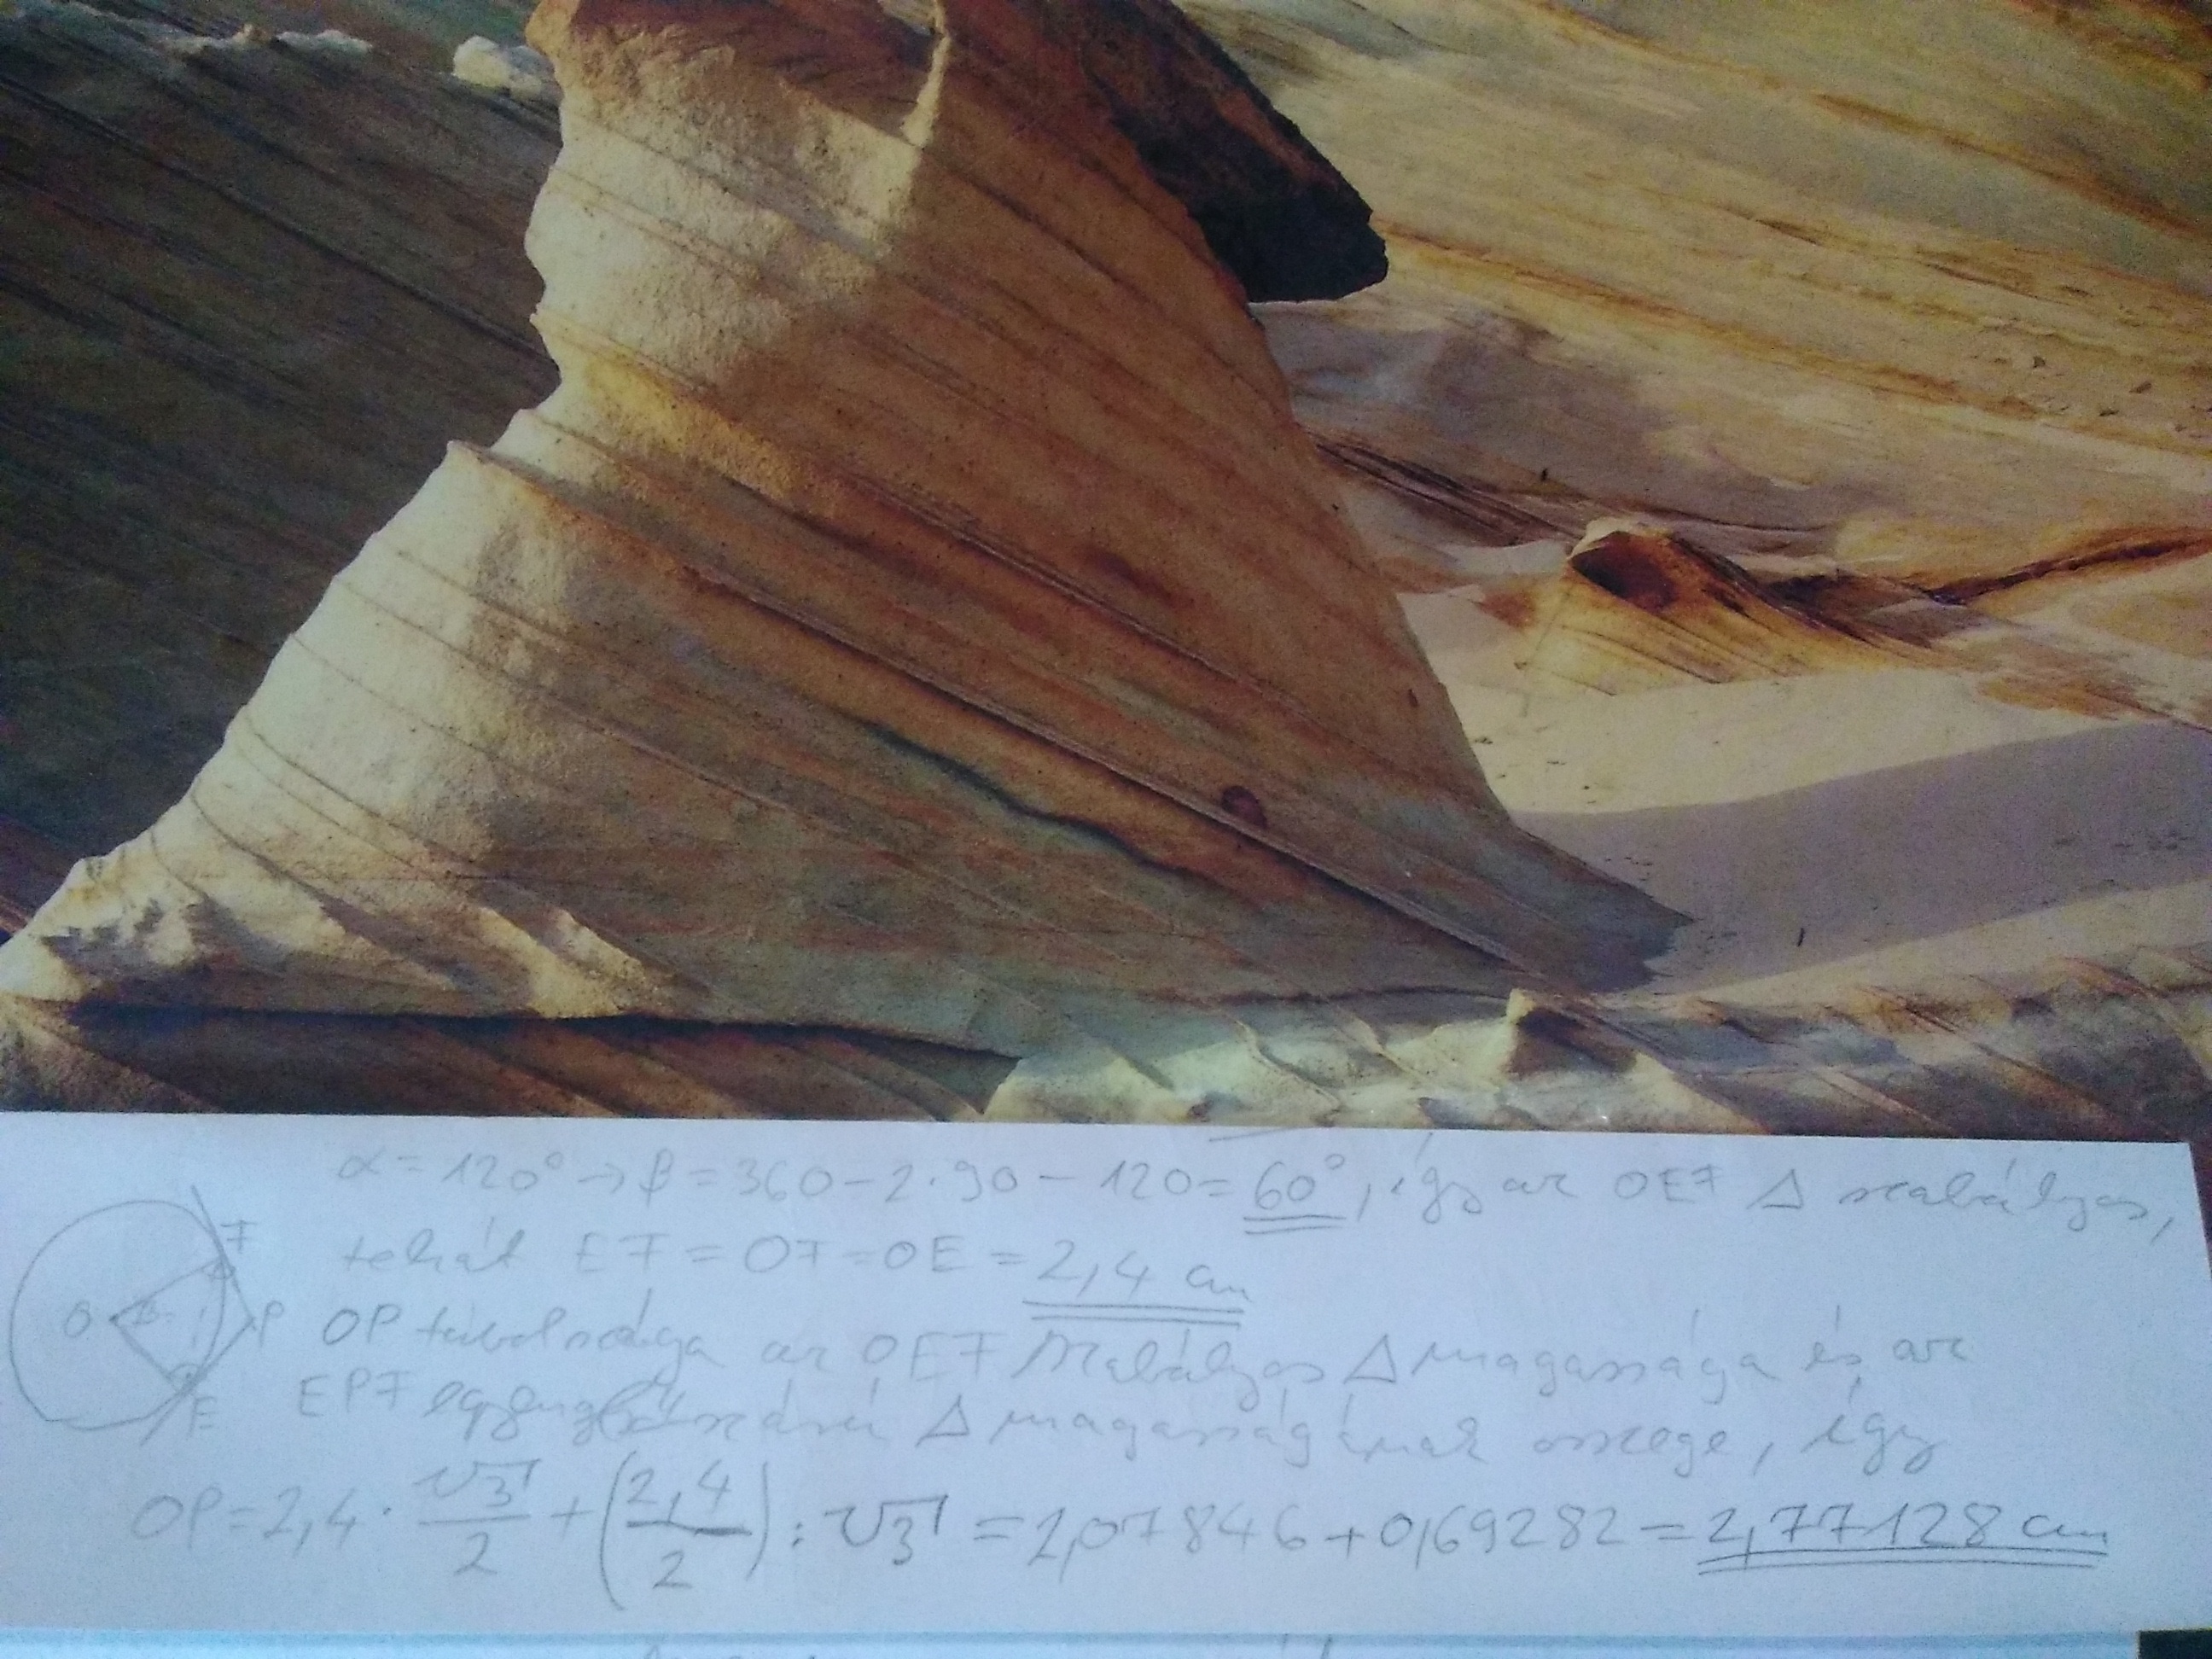 α = 120° → β = 360 - 2·90 - 120 = 60°, így az OEF Δ szabályos,
tehát EF = OF = OE = 2,4 cm
OP távolsága az OEF szabályos Δ magassága és az
EPF egyenlőszárú Δ magasságának összege, így
OP = 2,4 · √3/2 + (2,4/2) : √3 = 2,07846 + 0,69282 = 2,77128 cm
F
O β P
E